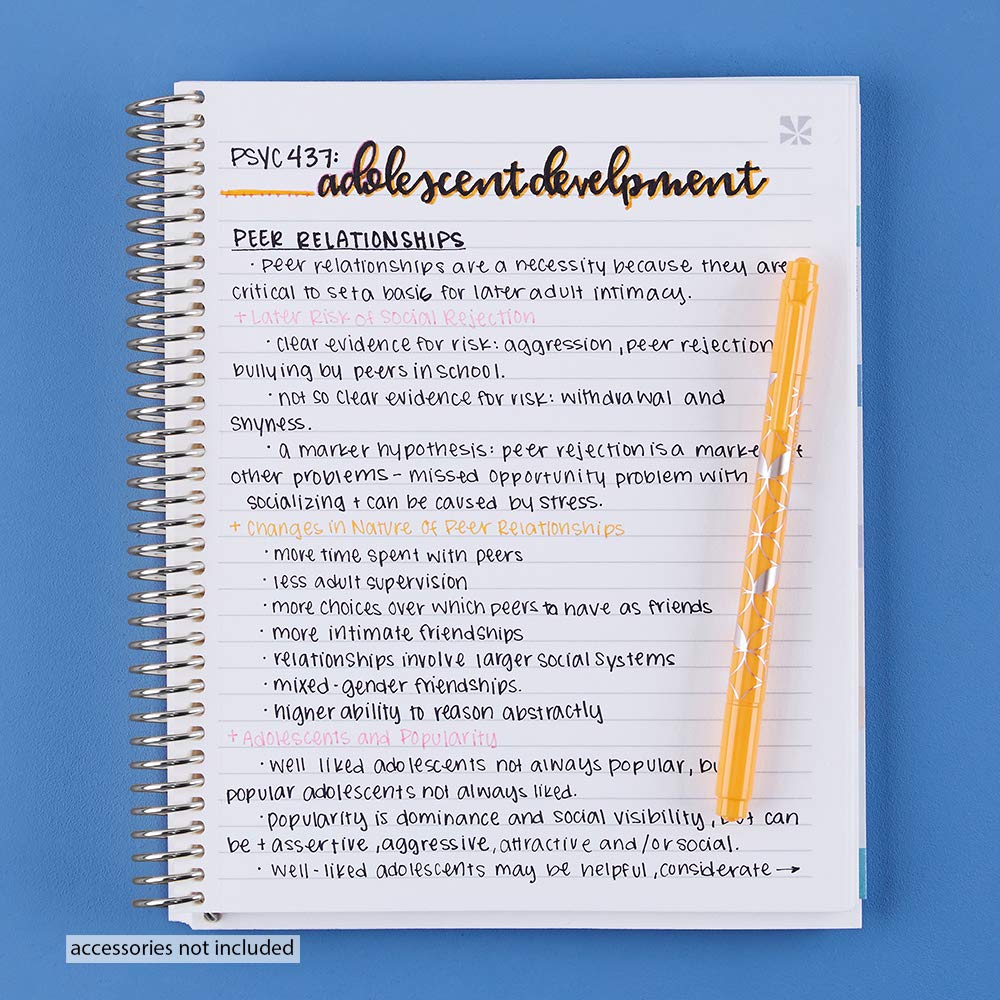 PSYC 437: adolescent develpment
PEER RELATIONSHIPS
· peer relationships are a necessity because they are
critical to set a basis for later adult intimacy.
+ Later Risk of Social Rejection
· clear evidence for risk: aggression, peer rejection
bullying by peers in school.
· not so clear evidence for risk: withdrawal and
shyness.
· a marker hypothesis: peer rejection is a
other problems - missed opportunity problem with
socializing + can be caused by stress.
+ Changes in Nature of Peer Relationships
· more time spent with peers
· less adult supervision
· more choices over which peers to have as friends
· more intimate friendships
· relationships involve larger social systems
· mixed-gender friendships.
· higher ability to reason abstractly
+ Adolescents and Popularity
· well liked adolescents not always popular,
popular adolescents not always liked.
· popularity is dominance and social visibility, but can
be + assertive, aggressive, attractive and/or social.
· well-liked adolescents may be helpful, considerate →
accessories not included